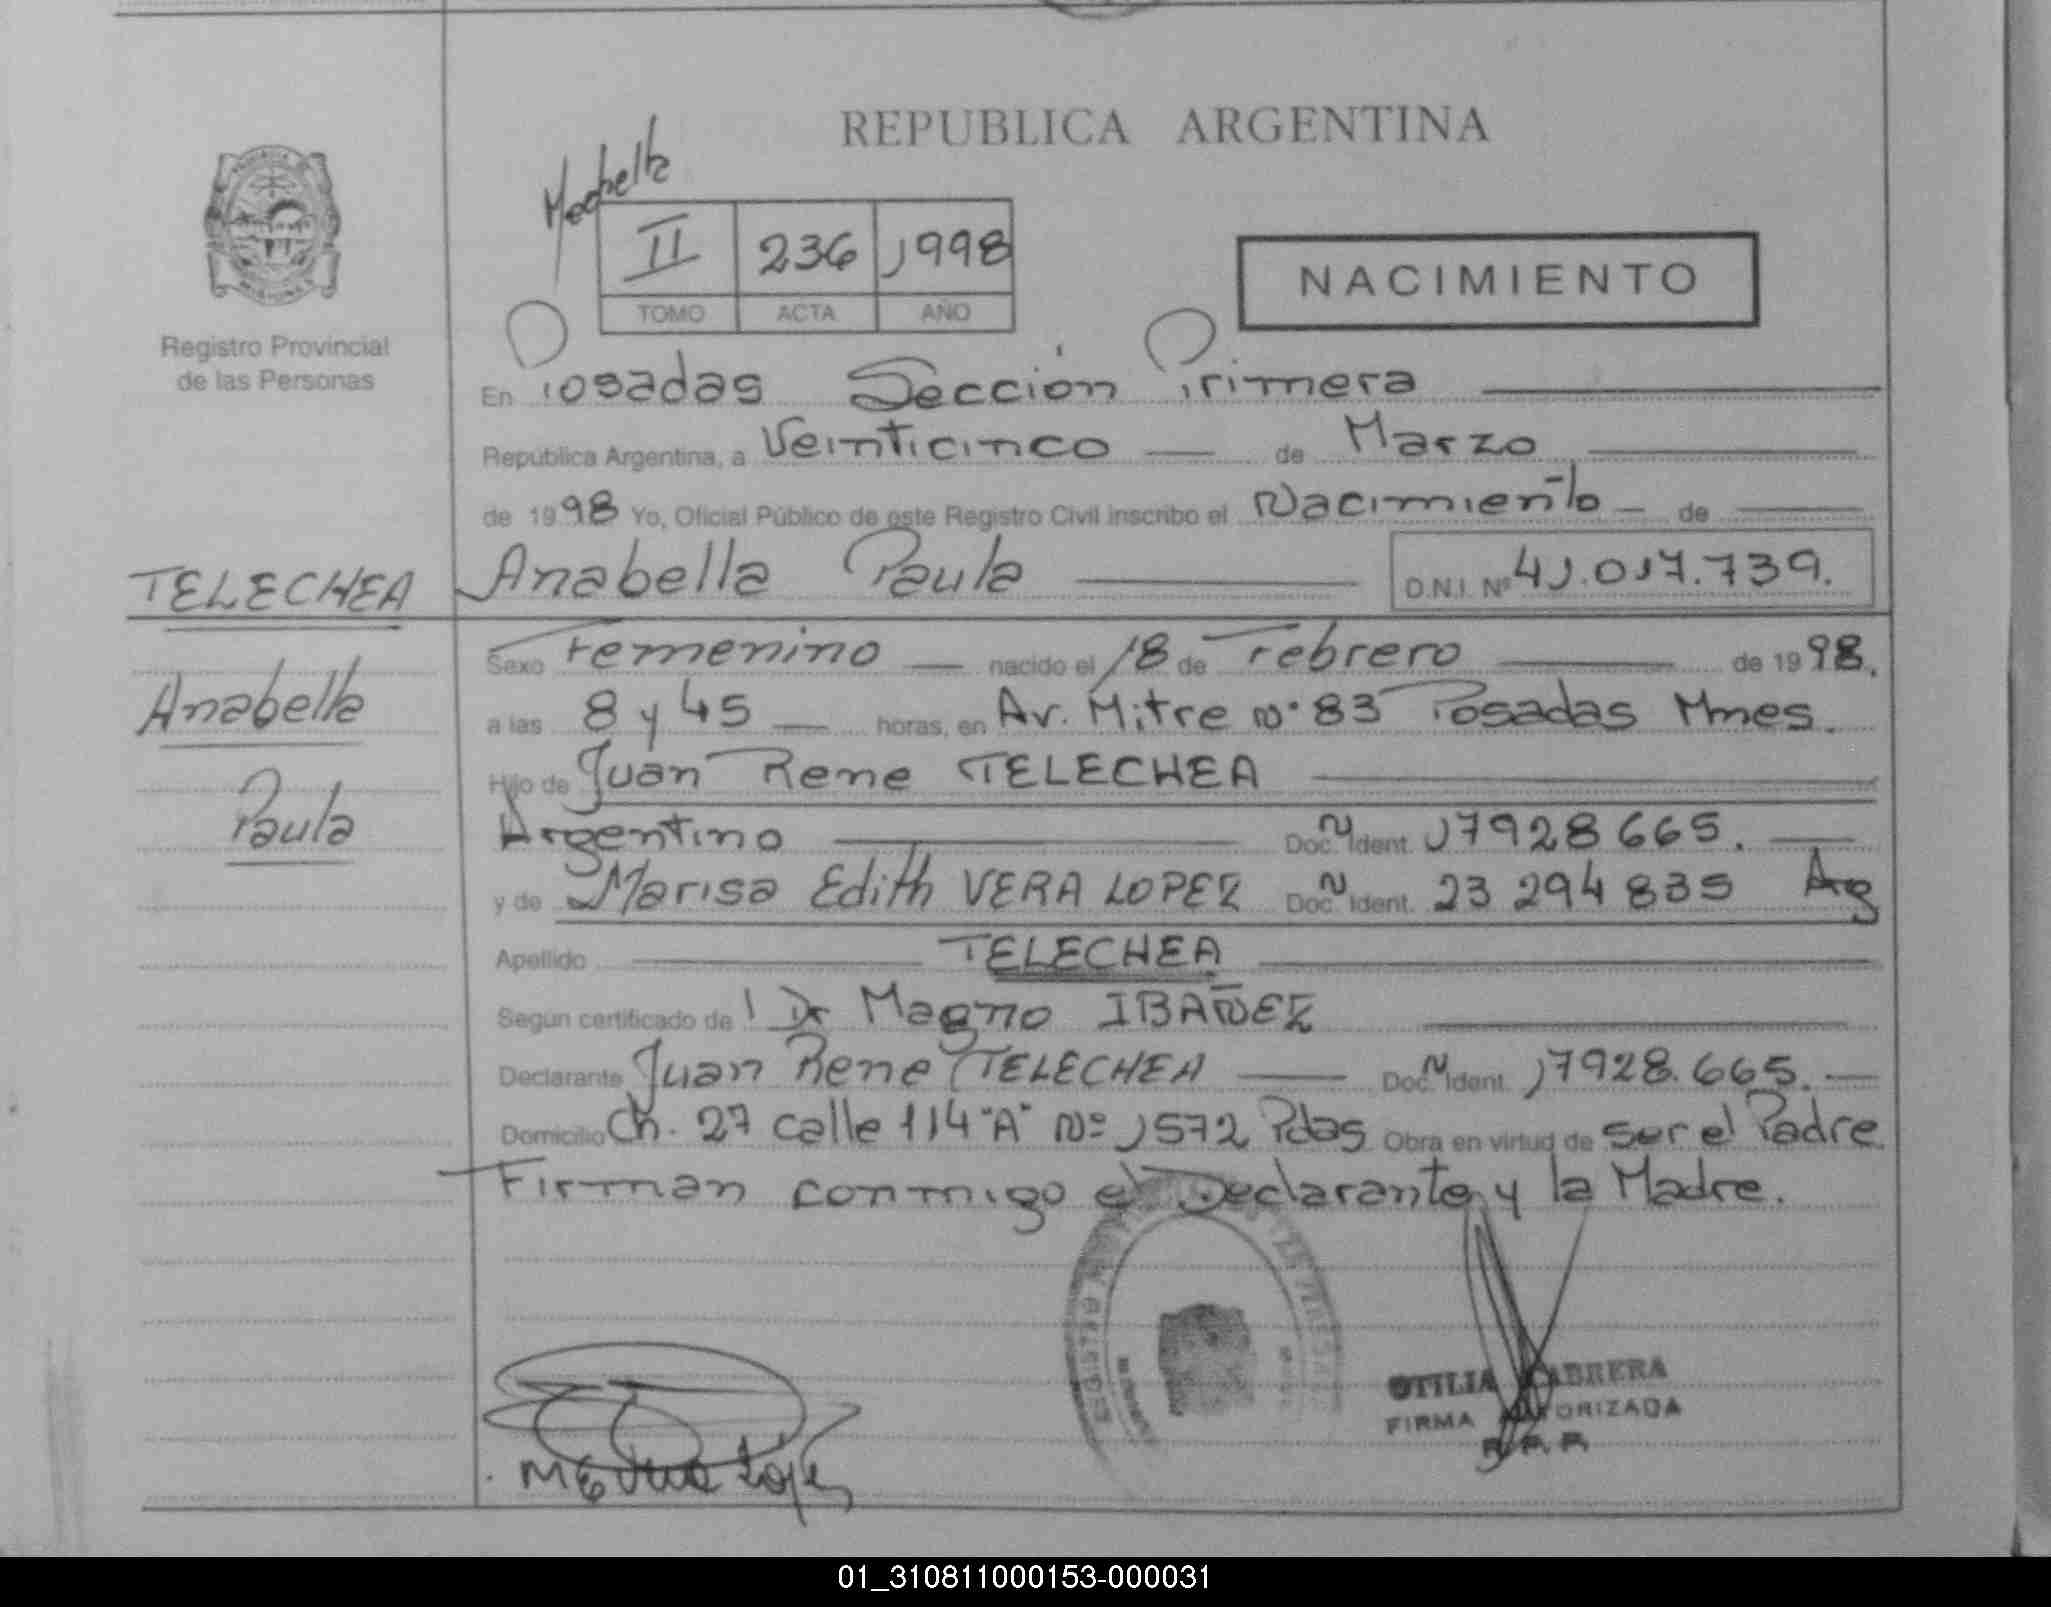 REPUBLICA ARGENTINA
II 236 1998
TOMO ACTA AÑO
NACIMIENTO
Registro Provincial
de las Personas
En Posadas Sección Primera
República Argentina, a Veinticinco de Marzo
de 1998 Yo, Oficial Público de este Registro Civil inscribo el Nacimiento de
TELECHEA
Anabella Paula D.N.I. Nº 41.017.739.
Anabella
Paula
Sexo Femenino nacido el 18 de Febrero de 1998.
a las 8 y 45 horas, en Av. Mitre Nº 83 Posadas Mnes.
Hijo de Juan Rene TELECHEA
Argentino Doc. N Ident. 17928665.
y de Marisa Edith VERA LOPEZ Doc. N Ident. 23 294 835 Arg
Apellido TELECHEA
Segun certificado de l Dr Magno IBAÑEZ
Declarante Juan Rene TELECHEA Doc. N Ident. 17928.665.
Domicilio Ch. 27 calle 114 "A" Nº 1572 Pdas Obra en virtud de ser el Padre
Firman conmigo el Declarante y la Madre.
OTILIA CABRERA
FIRMA AUTORIZADA
01_310811000153-000031